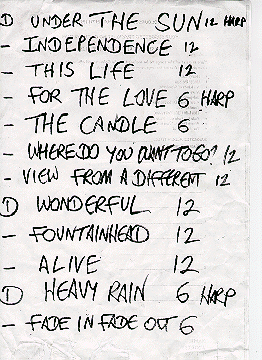 D UNDER THE SUN 12 HARP
- INDEPENDENCE 12
- THIS LIFE 12
- FOR THE LOVE 6 HARP
- THE CANDLE 6
- WHERE DO YOU WANT TO GO? 12
- VIEW FROM A DIFFERENT 12
D WONDERFUL 12
- FOUNTAINHEAD 12
- ALIVE 12
D HEAVY RAIN 6 HARP
- FADE IN FADE OUT 6